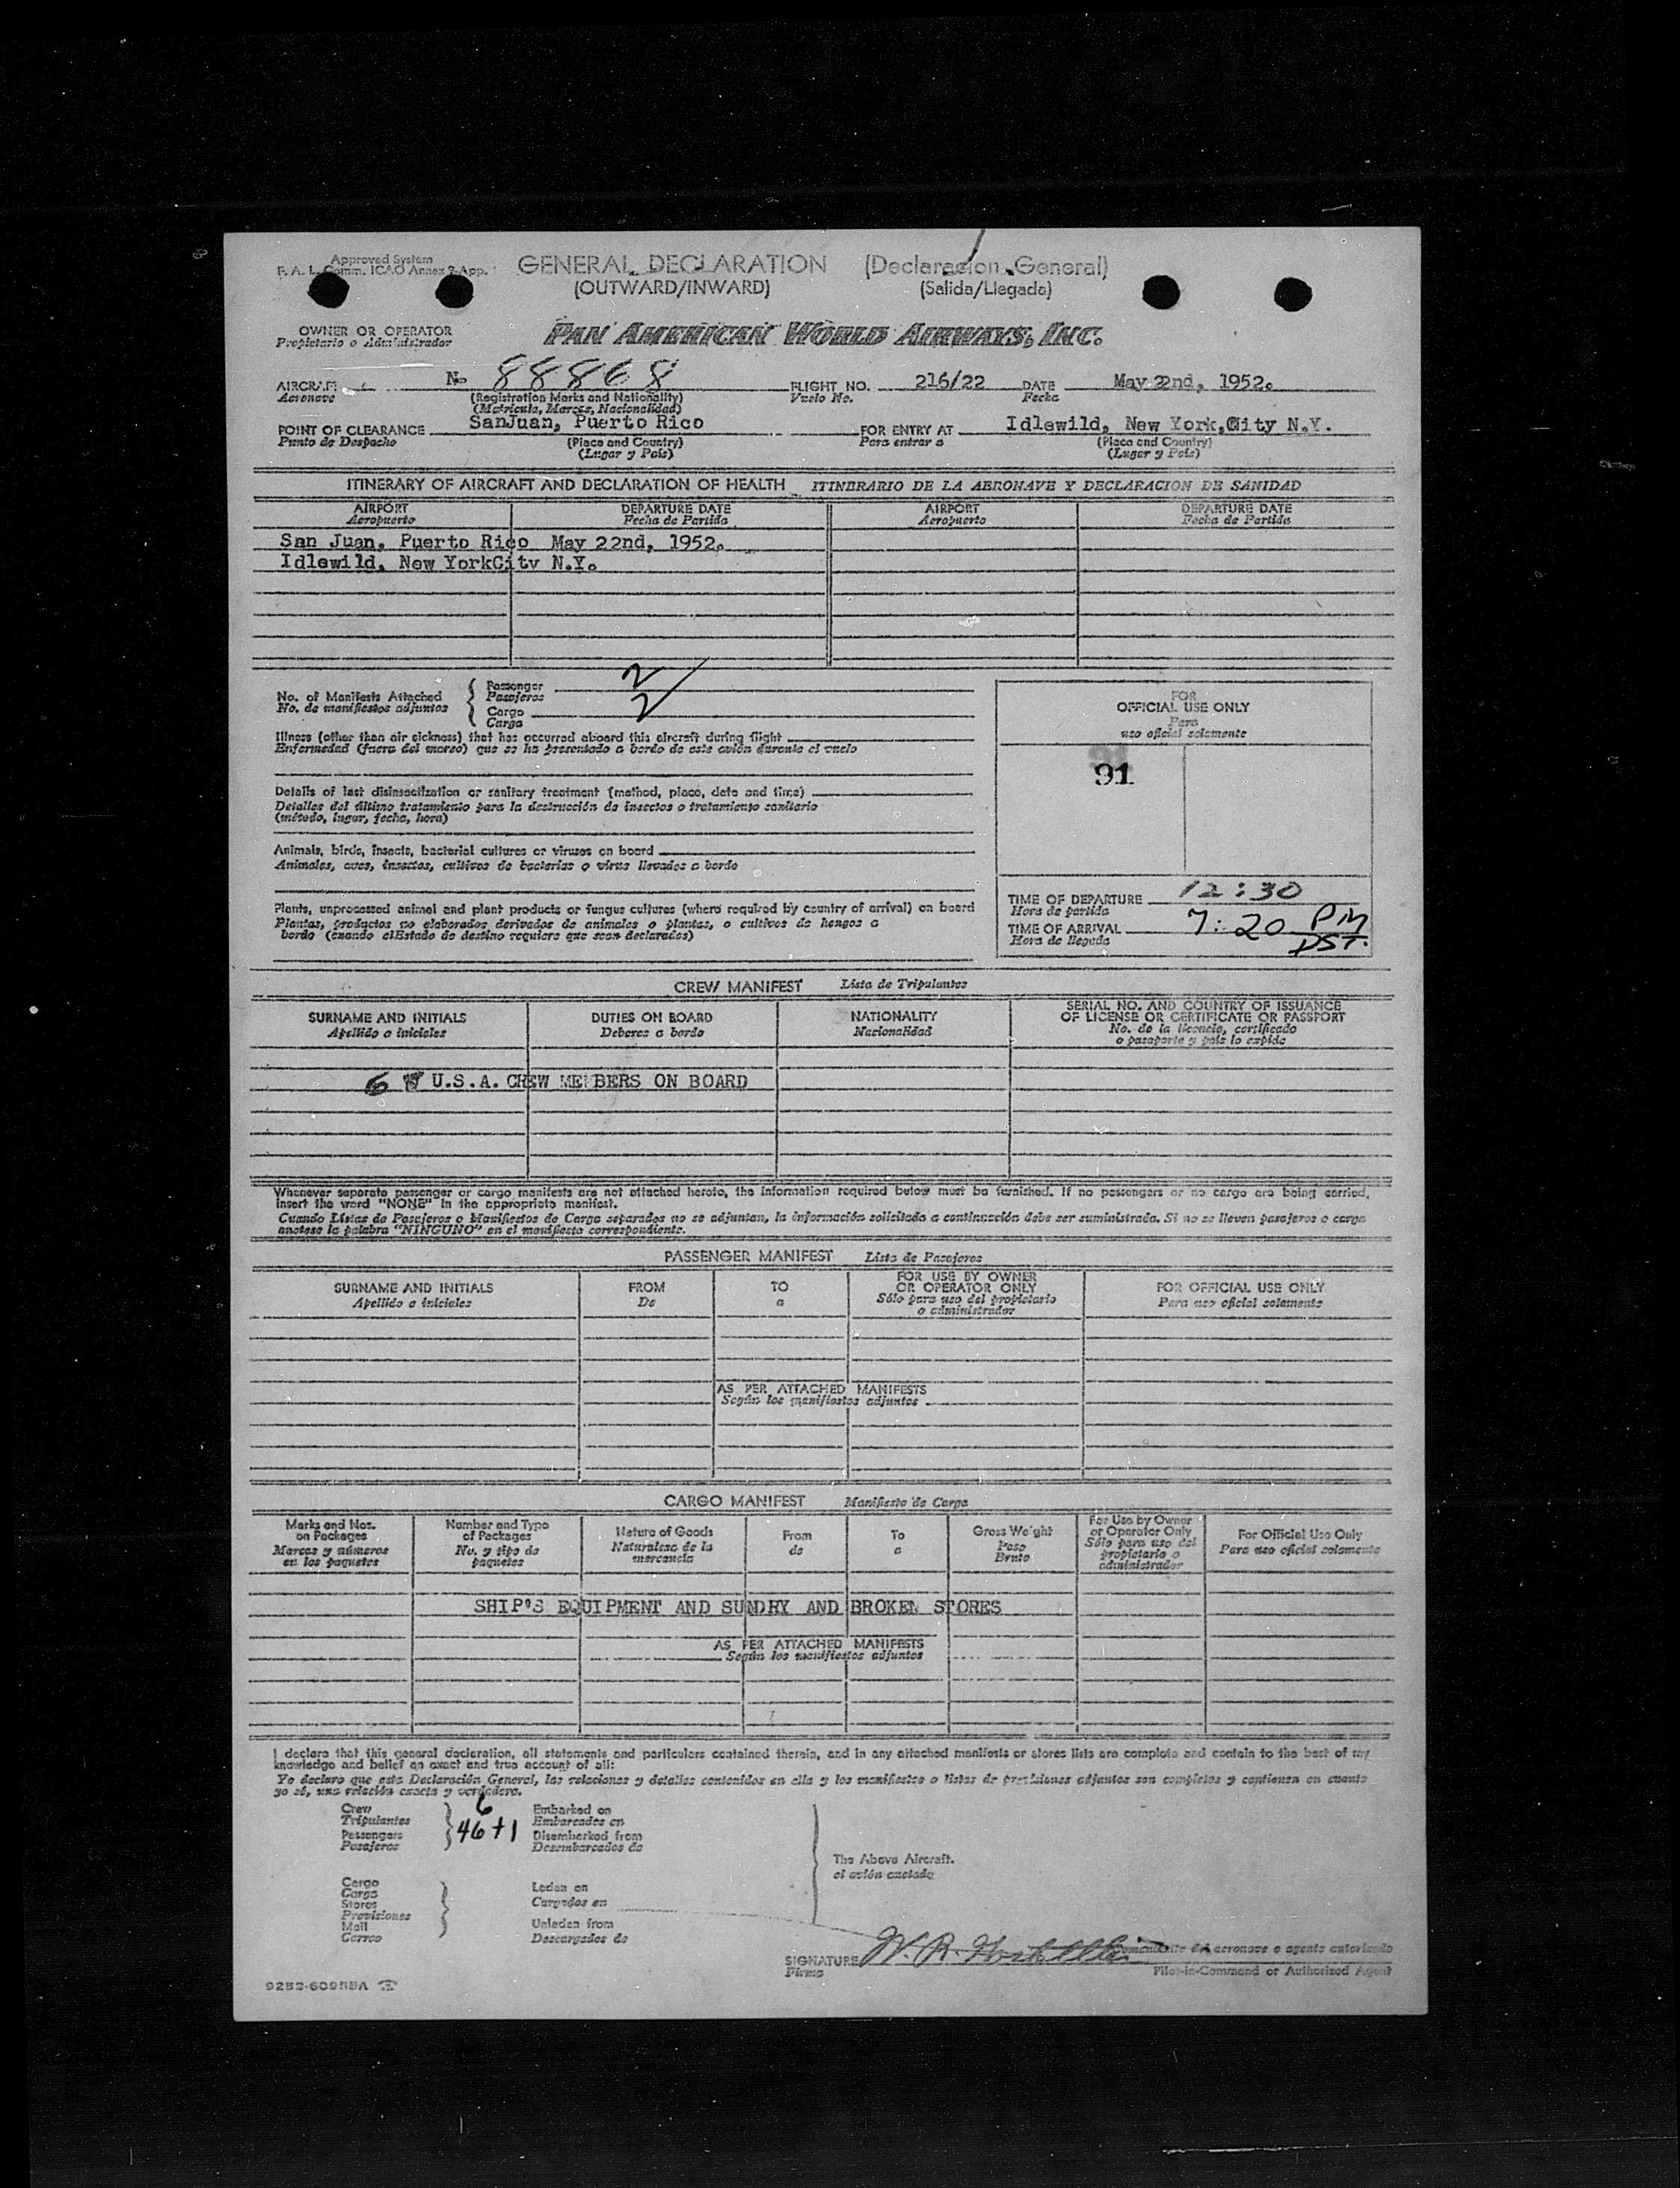 Approved System
F. A. L. Comm. ICAO Annex 9-App.
GENERAL DECLARATION (Declaracion General)
(OUTWARD/INWARD) (Salida/Llegada)
OWNER OR OPERATOR
Propietario o Administrador
PAN AMERICAN WORLD AIRWAYS, INC.
AIRCRAFT No 88868 FLIGHT NO. 216/22 DATE May 22nd, 1952.
Aeronave (Registration Marks and Nationality) Vuelo No. Fecha
(Matricula, Marcas, Nacionalidad)
POINT OF CLEARANCE SanJuan, Puerto Rico FOR ENTRY AT Idlewild, New York,City N.Y.
Punto de Despacho (Place and Country) Para entrar a (Place and Country)
(Lugar y País) (Lugar y País)
ITINERARY OF AIRCRAFT AND DECLARATION OF HEALTH ITINERARIO DE LA AERONAVE Y DECLARACION DE SANIDAD
AIRPORT DEPARTURE DATE AIRPORT DEPARTURE DATE
Aeropuerto Fecha de Partida Aeropuerto Fecha de Partida
San Juan, Puerto Rico May 22nd, 1952.
Idlewild, New YorkCity N.Y.
No. of Manifests Attached
No. de manifiestos adjuntos
Passenger 2
Pasajeros
Cargo 2
Carga
FOR
OFFICIAL USE ONLY
Para
uso oficial solamente
91
91
Illness (other than air sickness) that has occurred aboard this aircraft during flight
Enfermedad (fuera del mareo) que se ha presentado a bordo de este avión durante el vuelo
Details of last disinsectization or sanitary treatment (method, place, date and time)
Detalles del último tratamiento para la destrucción de insectos o tratamiento sanitario
(método, lugar, fecha, hora)
Animals, birds, insects, bacterial cultures or viruses on board
Animales, aves, insectos, cultivos de bacterias o virus llevados a bordo
Plants, unprocessed animal and plant products or fungus cultures (where required by country of arrival) on board
Plantas, productos no elaborados derivados de animales o plantas, o cultivos de hongos a
bordo (cuando elEstado de destino requiera que sean declarados)
TIME OF DEPARTURE 12:30
Hora de partida
TIME OF ARRIVAL 7:20 PM
Hora de llegada DST.
CREW MANIFEST Lista de Tripulantes
SURNAME AND INITIALS DUTIES ON BOARD NATIONALITY SERIAL NO. AND COUNTRY OF ISSUANCE
OF LICENSE OR CERTIFICATE OR PASSPORT
Apellido o iniciales Deberes a bordo Nacionalidad No. de la licencia, certificado
o pasaporte y país lo expide
6 U.S.A. CREW MEMBERS ON BOARD
Whenever separate passenger or cargo manifests are not attached hereto, the information required below must be furnished. If no passengers or no cargo are being carried,
insert the word "NONE" in the appropriate manifest.
Cuando Listas de Pasajeros o Manifiestos de Carga separados no se adjuntan, la información solicitada a continuación debe ser suministrada. Si no se lleven pasajeros o carga
anotese la palabra "NINGUNO" en el manifiesto correspondiente.
PASSENGER MANIFEST Lista de Pasajeros
SURNAME AND INITIALS FROM TO FOR USE BY OWNER
OR OPERATOR ONLY FOR OFFICIAL USE ONLY
Apellido e iniciales De a Sólo para uso del propietario
o administrador Para uso oficial solamente
AS PER ATTACHED MANIFESTS
Según los manifiestos adjuntos
CARGO MANIFEST Manifiesto de Carga
Marks and Nos.
on Packages
Marcas y números
en los paquetes
Number and Type
of Packages
No. y tipo de
paquetes
Nature of Goods
Naturaleza de la
mercancia
From
de
To
a
Gross Weight
Peso
Bruto
For Use by Owner
or Operator Only
Sólo para uso del
propietario o
administrador
For Official Use Only
Para uso oficial solamente
SHIP'S EQUIPMENT AND SUNDRY AND BROKEN STORES
AS PER ATTACHED MANIFESTS
Según los manifiestos adjuntos
I declare that this general declaration, all statements and particulars contained therein, and in any attached manifests or stores lists are complete and contain to the best of my
knowledge and belief an exact and true account of all:
Yo declaro que esta Declaración General, las relaciones y detalles contenidos en ella y los manifiestos o listas de provisiones adjuntos son completos y contienen en cuanto
yo sé, una relación exacta y verdadera.
Crew 6
Tripulantes
Passengers 46+1
Pasajeros
Embarked on
Embarcados en
Disembarked from
Desembarcados de
The Above Aircraft.
el avión anotado
Cargo
Carga
Stores
Provisiones
Mail
Correo
Laden on
Cargados en
Unladen from
Descargados de
SIGNATURE W. R.
Firma
Comandante del aeronave o agente autorizado
Pilot-in-Command or Authorized Agent